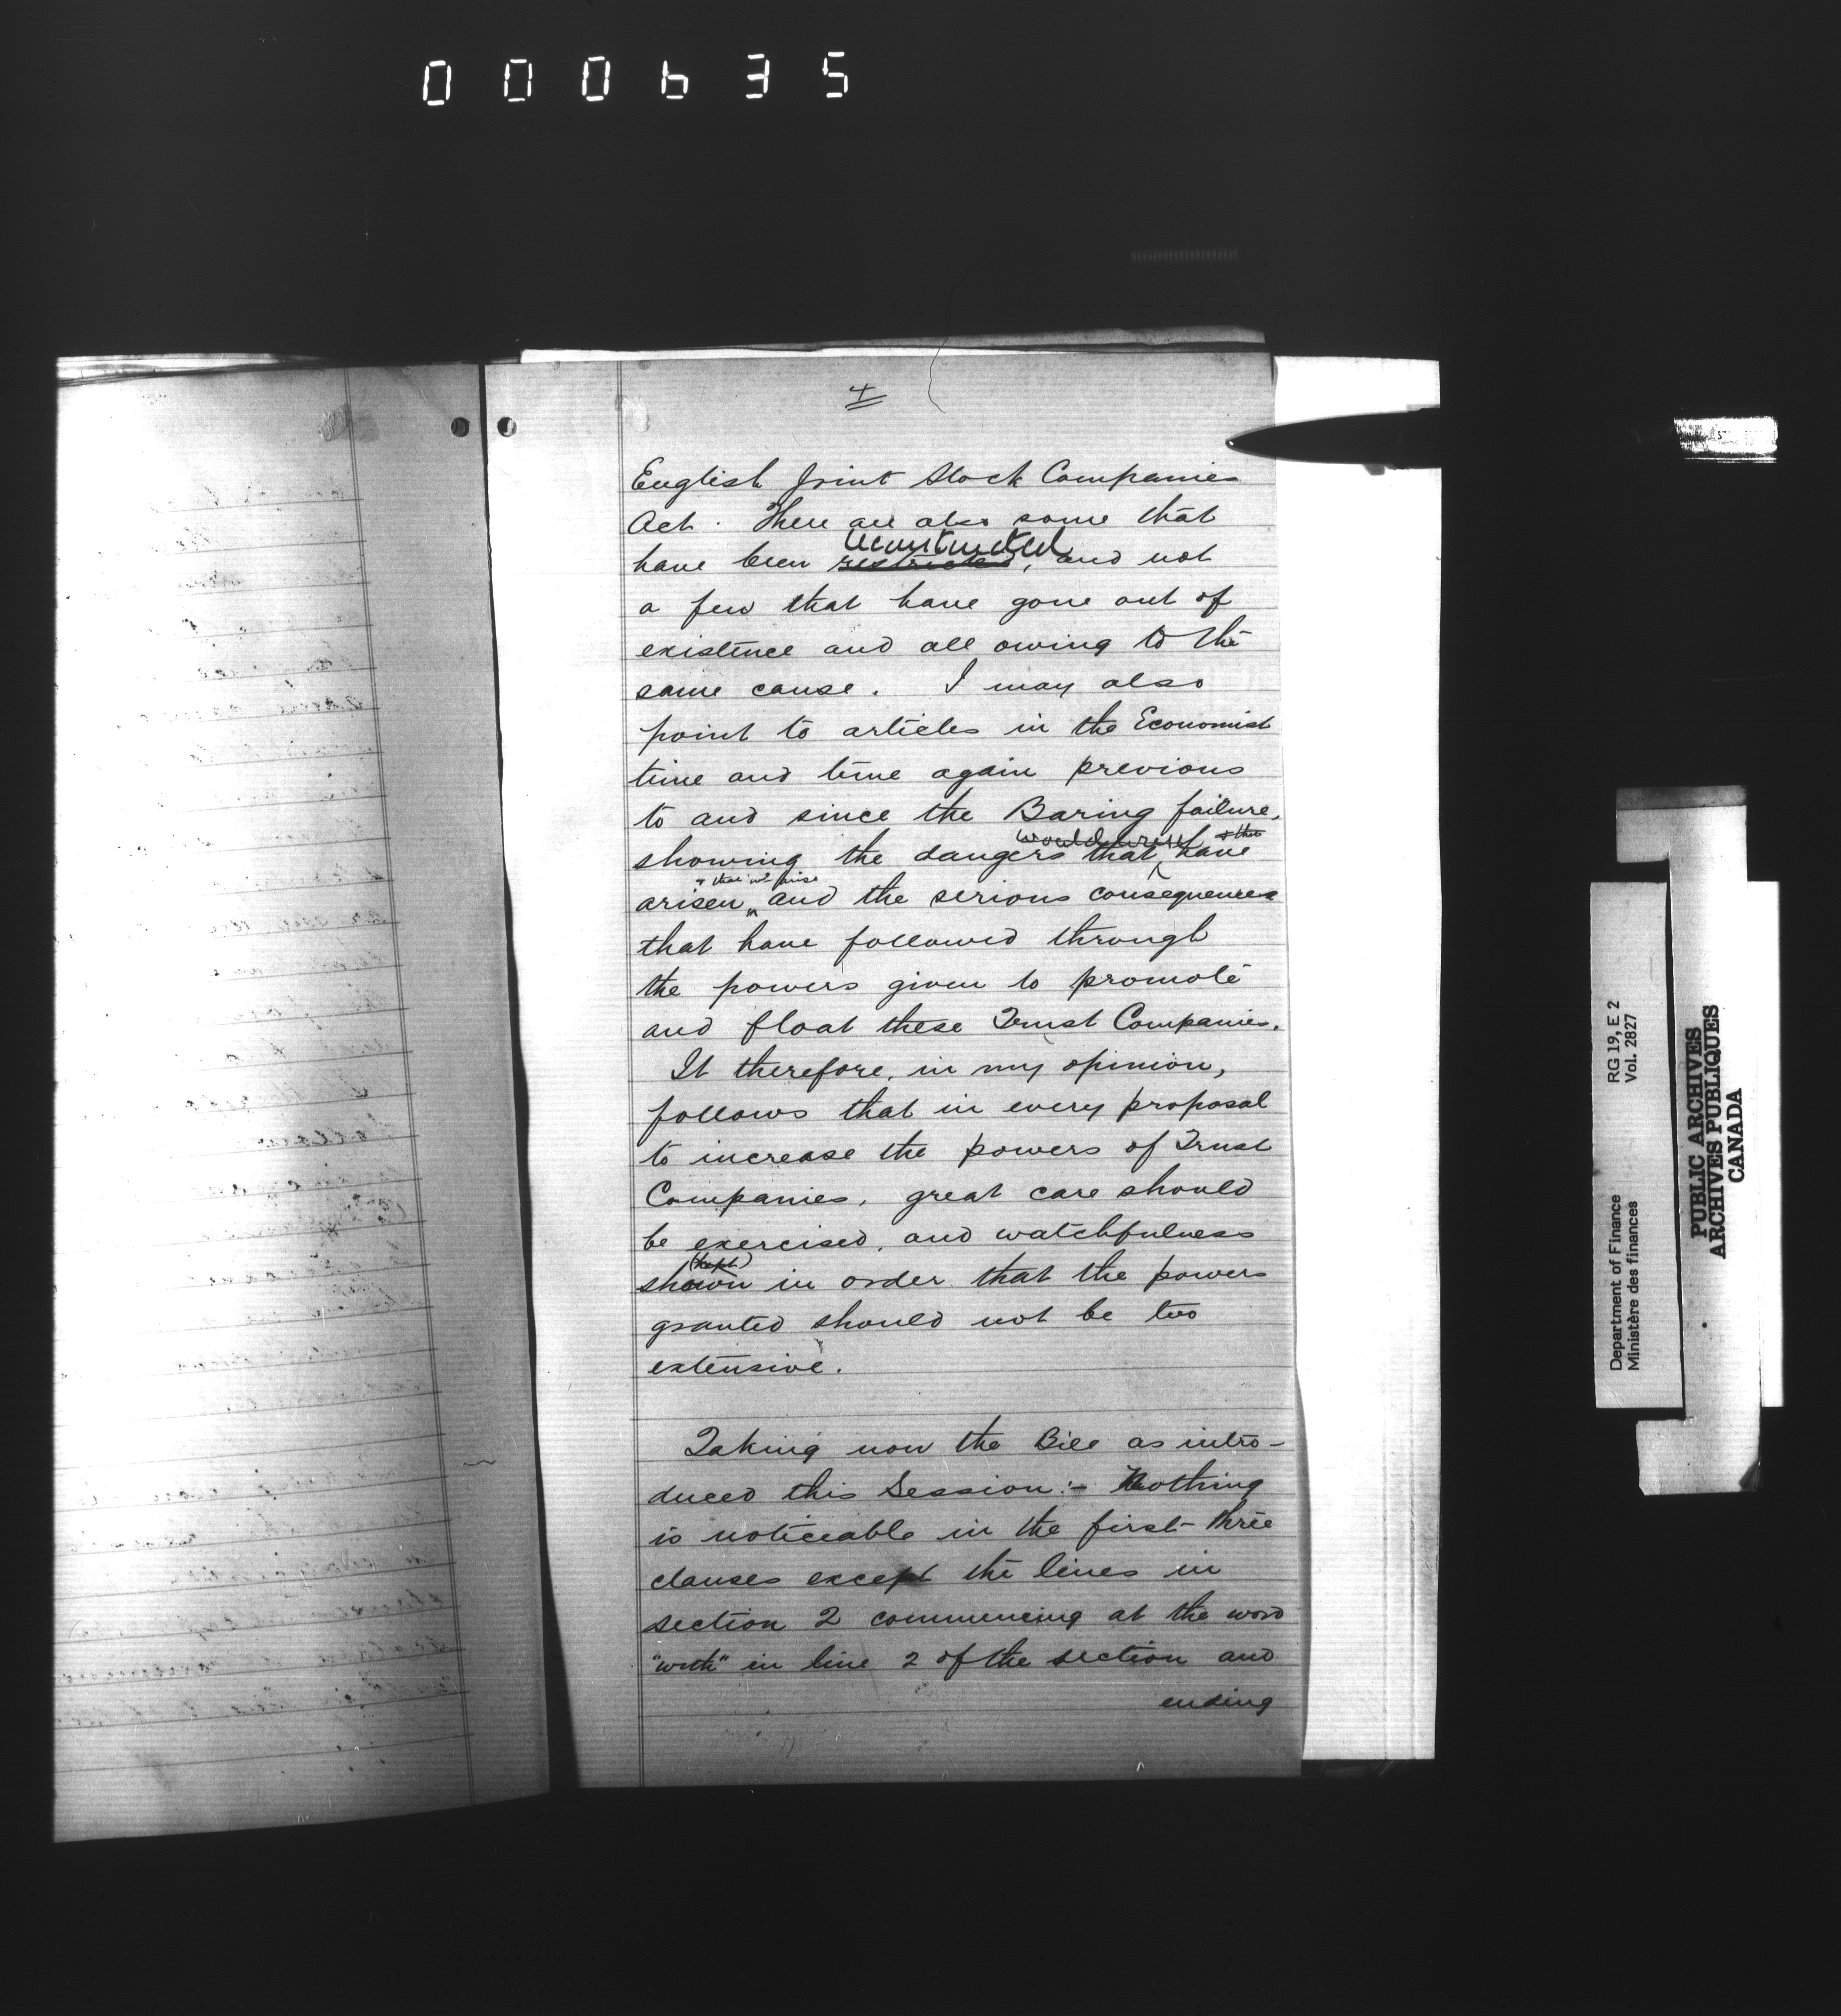 000635
4
English Joint Stock Companies
Act. There are also some that
reconstructed
have been restricted, and not
a few that have gone out of
existence and all owing to the
same cause. I may also
point to articles in the Economist
time and time again previous
to and since the Baring failure,
would arise & that
showing the dangers that have
& that wd arise
arisen, and the serious consequences
that have followed through
the powers given to promote
and float these Trust Companies.
It therefore, in my opinion,
follows that in every proposal
to increase the powers of Trust
Companies, great care should
be exercised, and watchfulness
(kept)
shown in order that the powers
granted should not be too
extensive.
Taking now the Bill as intro-
duced this Session:- Nothing
is noticeable in the first three
clauses except the lines in
section 2 commencing at the word
"with" in line 2 of the section and
ending
Department of Finance RG 19, E 2
Ministère des finances Vol. 2827
PUBLIC ARCHIVES
ARCHIVES PUBLIQUES
CANADA